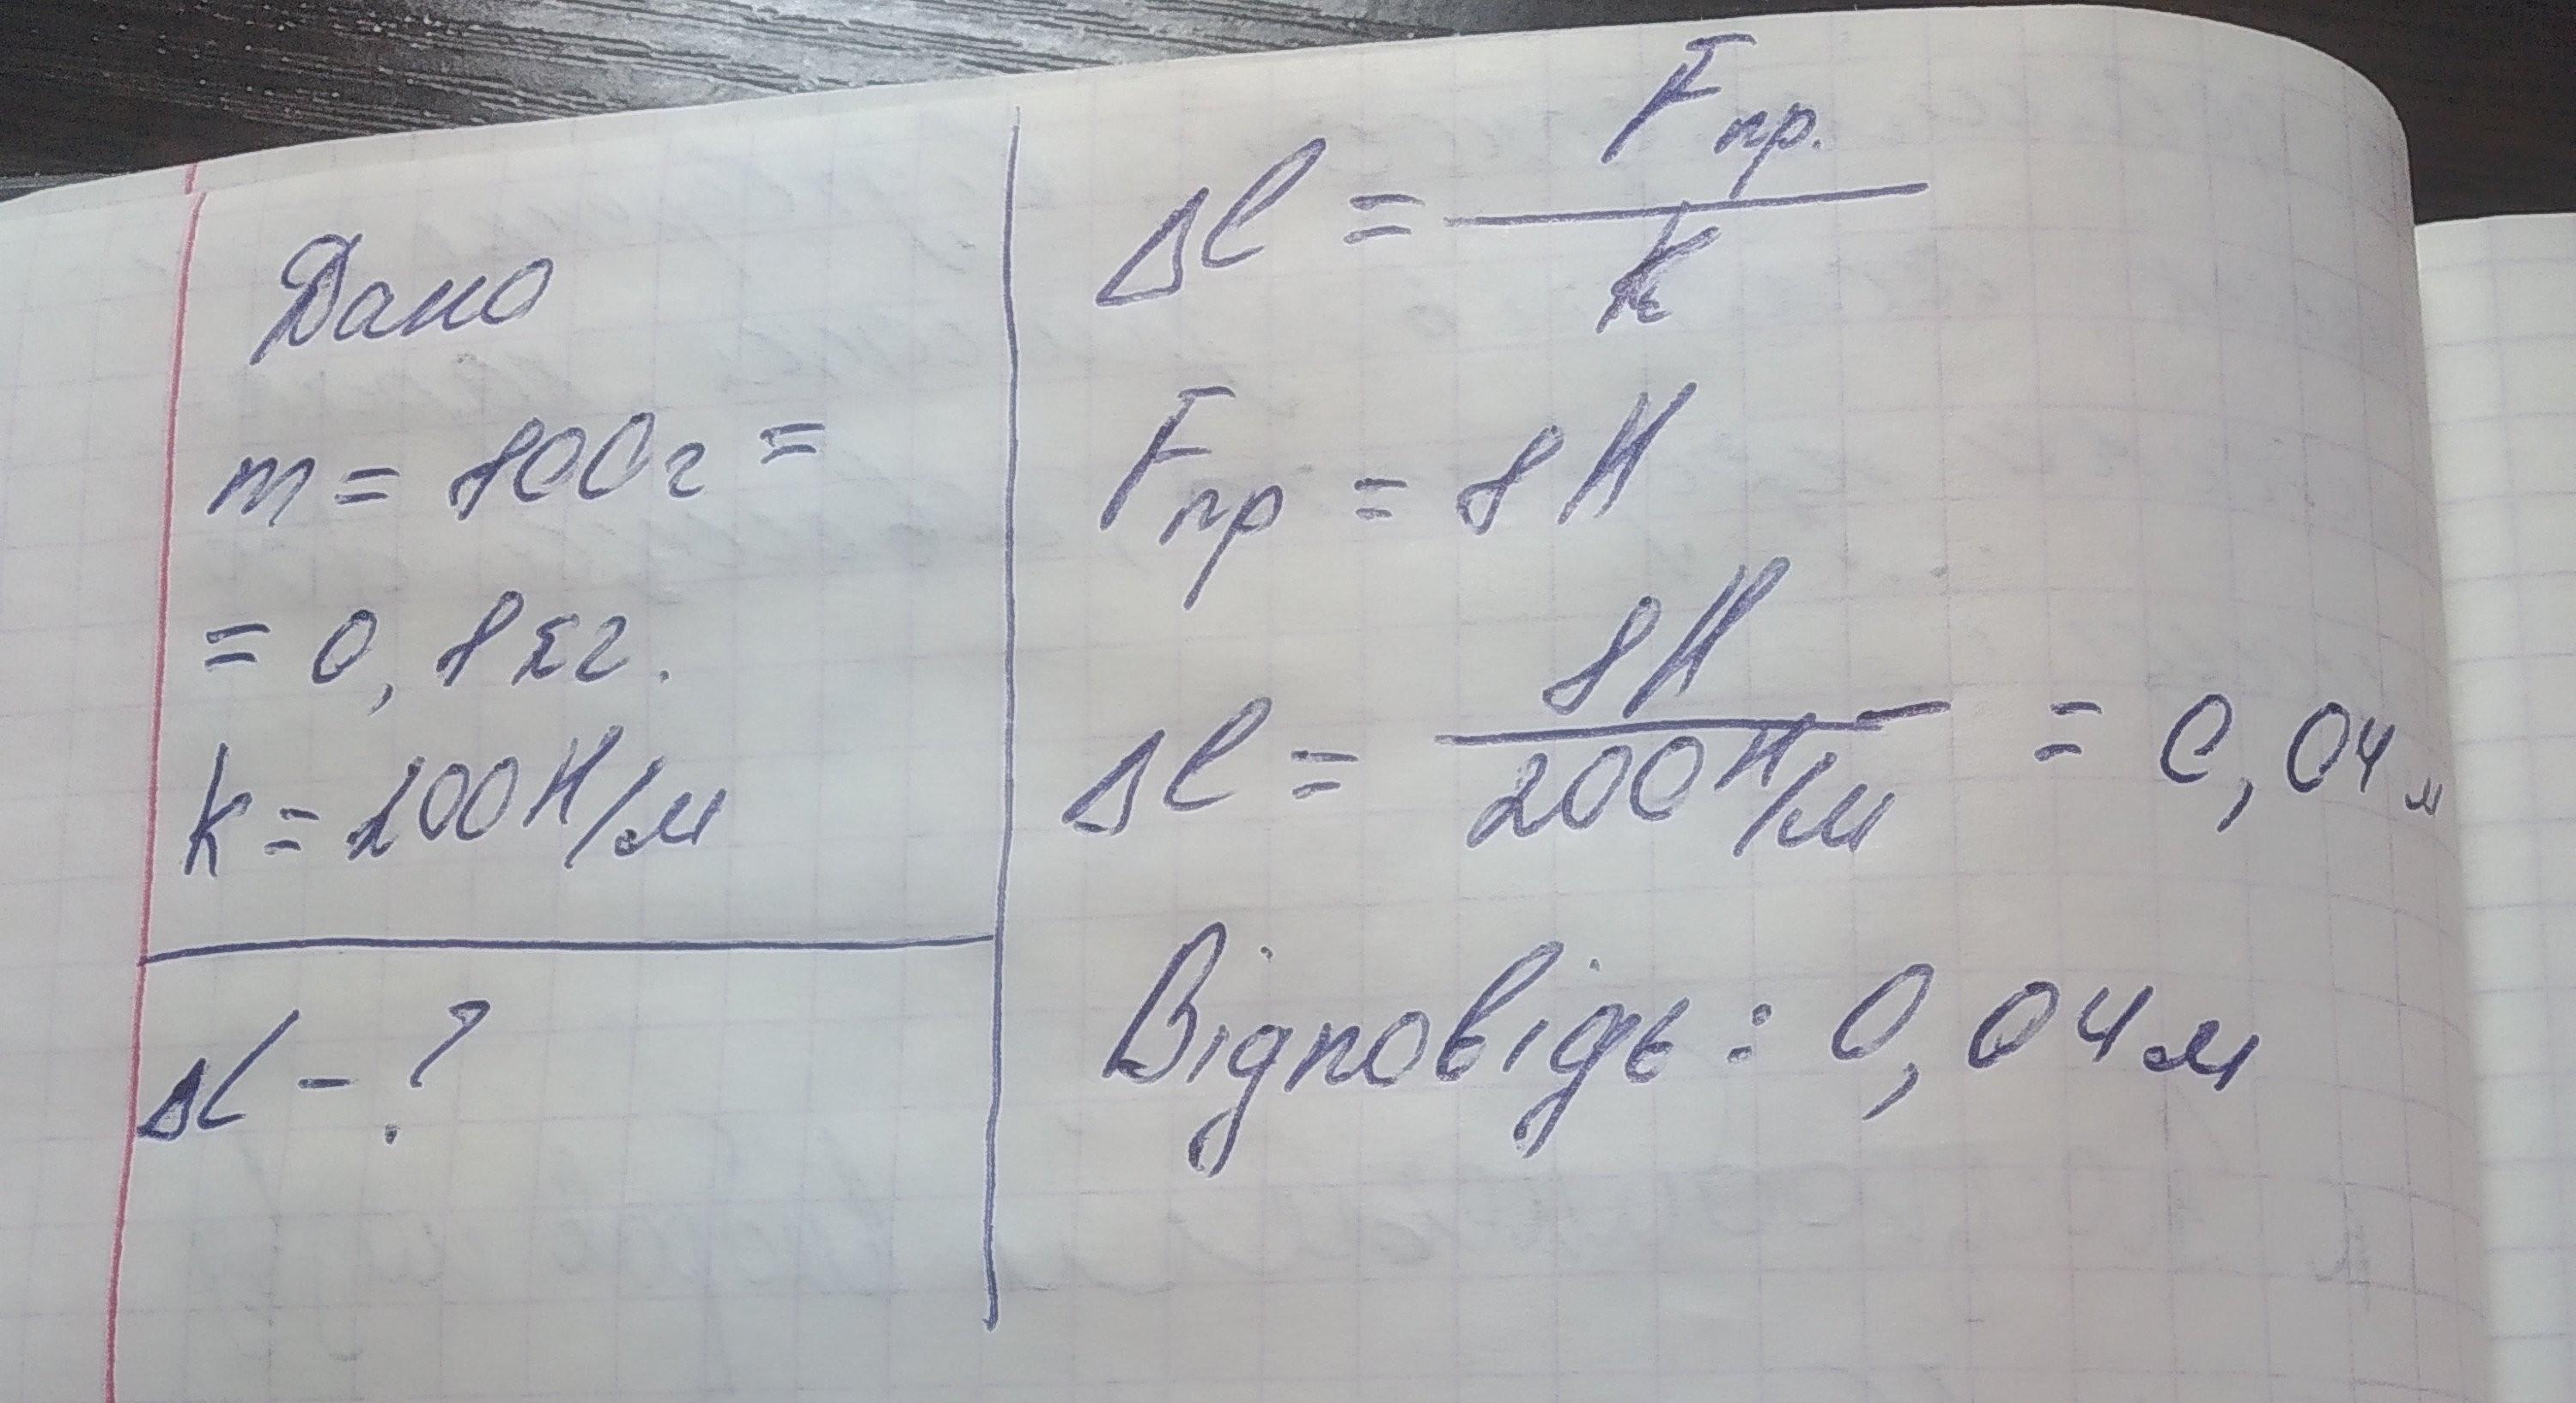 Дано
m = 800г =
= 0,8кг.
k = 200Н/м
Δl - ?
Δl = Fпр. / k
Fпр = 8Н
Δl = 8Н / 200Н/м = 0,04м
Відповідь: 0,04м